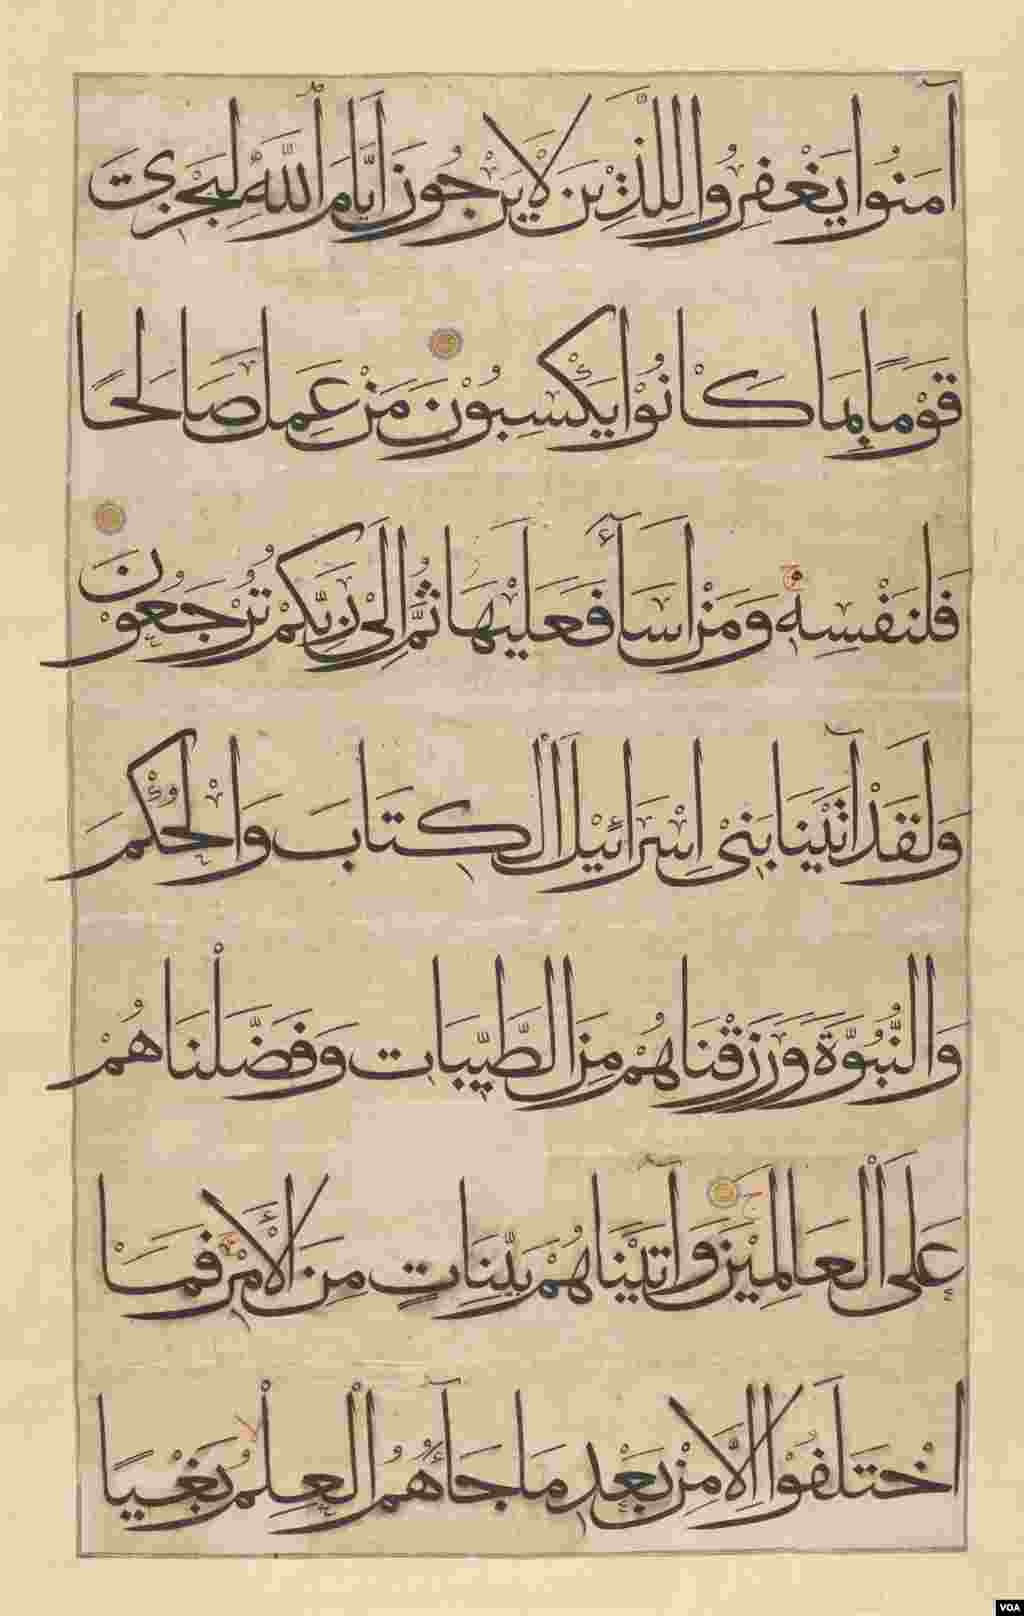 آمَنُوا يَغْفِرُوا لِلَّذِيْنَ لَا يَرْجُوْنَ أَيَّامَ اللَّهِ لِيَجْزِيَ
قَوْمًا بِمَا كَانُوْا يَكْسِبُوْنَ مَنْ عَمِلَ صَالِحًا
فَلِنَفْسِهِ وَمَنْ اَسَاءَ فَعَلَيْهَا ثُمَّ اِلَىٰ رَبِّكُمْ تُرْجَعُوْنَ
وَلَقَدْ اٰتَيْنَا بَنِيْ اِسْرَائِيْلَ الْكِتَابَ وَالْحُكْمَ
وَالنُّبُوَّةَ وَرَزَقْنَاهُمْ مِنَ الطَّيِّبَاتِ وَفَضَّلْنَاهُمْ
عَلَى الْعَالَمِيْنَ وَآتَيْنَاهُمْ بَيِّنَاتٍ مِنَ الْأَمْرِ فَمَا
اخْتَلَفُوْا اِلَّا مِنْ بَعْدِ مَا جَآءَهُمُ الْعِلْمُ بَغْيًا
VOA